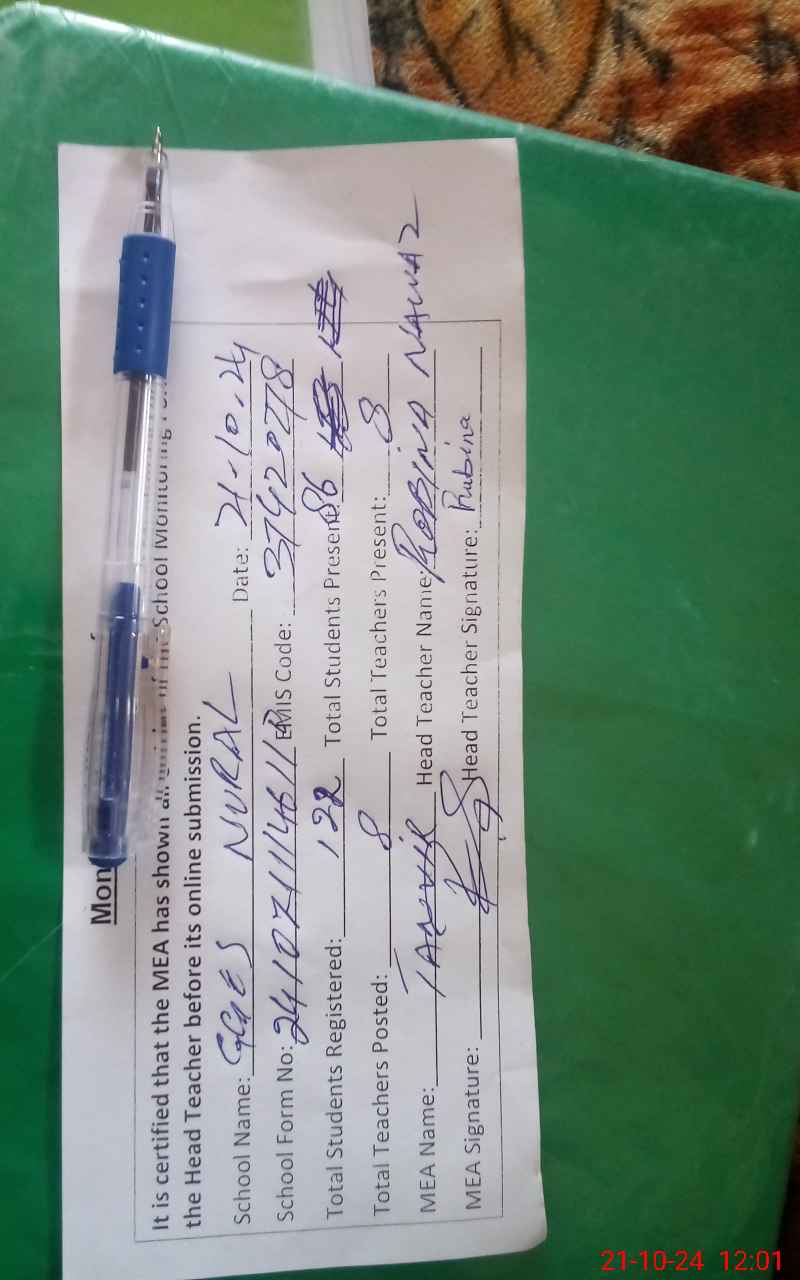 Mon
It is certified that the MEA has shown all School Monitoring
the Head Teacher before its online submission.
School Name: GGES NURAL Date: 21-10-24
School Form No: EMIS Code: 37420278
Total Students Registered: 122 Total Students Present: 86
Total Teachers Posted: 8 Total Teachers Present: 8
MEA Name: Head Teacher Name: ROBINA NAWAZ
MEA Signature: Head Teacher Signature: Rubina
21-10-24 12:01